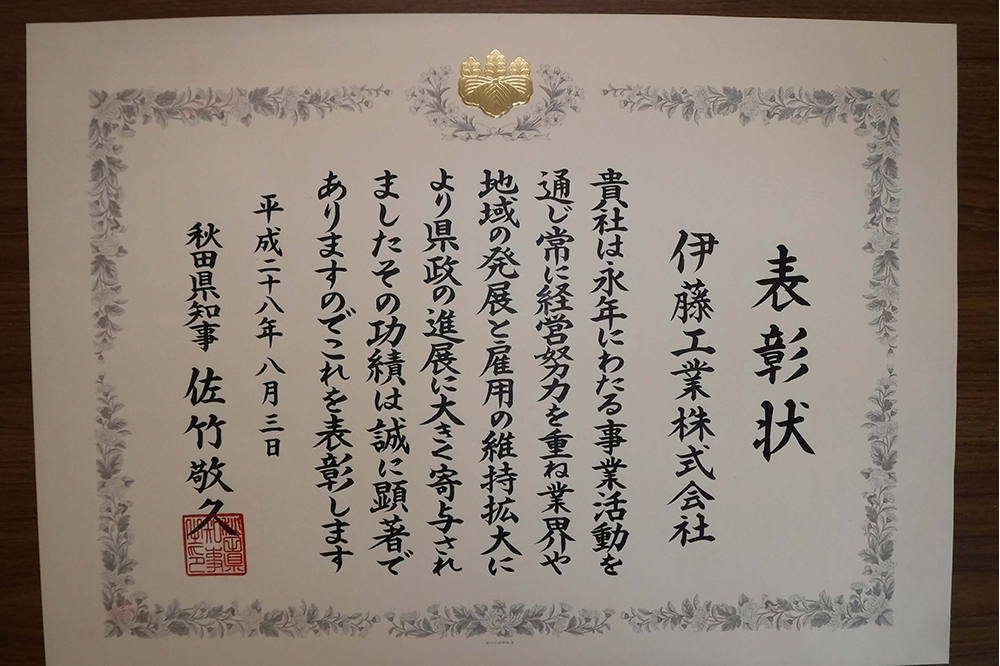 表彰状
伊藤工業株式会社
貴社は永年にわたる事業活動を
通じ常に経営努力を重ね業界や
地域の発展と雇用の維持拡大に
より県政の進展に大きく寄与され
ましたその功績は誠に顕著で
ありますのでこれを表彰します
平成二十八年八月三日
秋田県知事 佐竹敬久